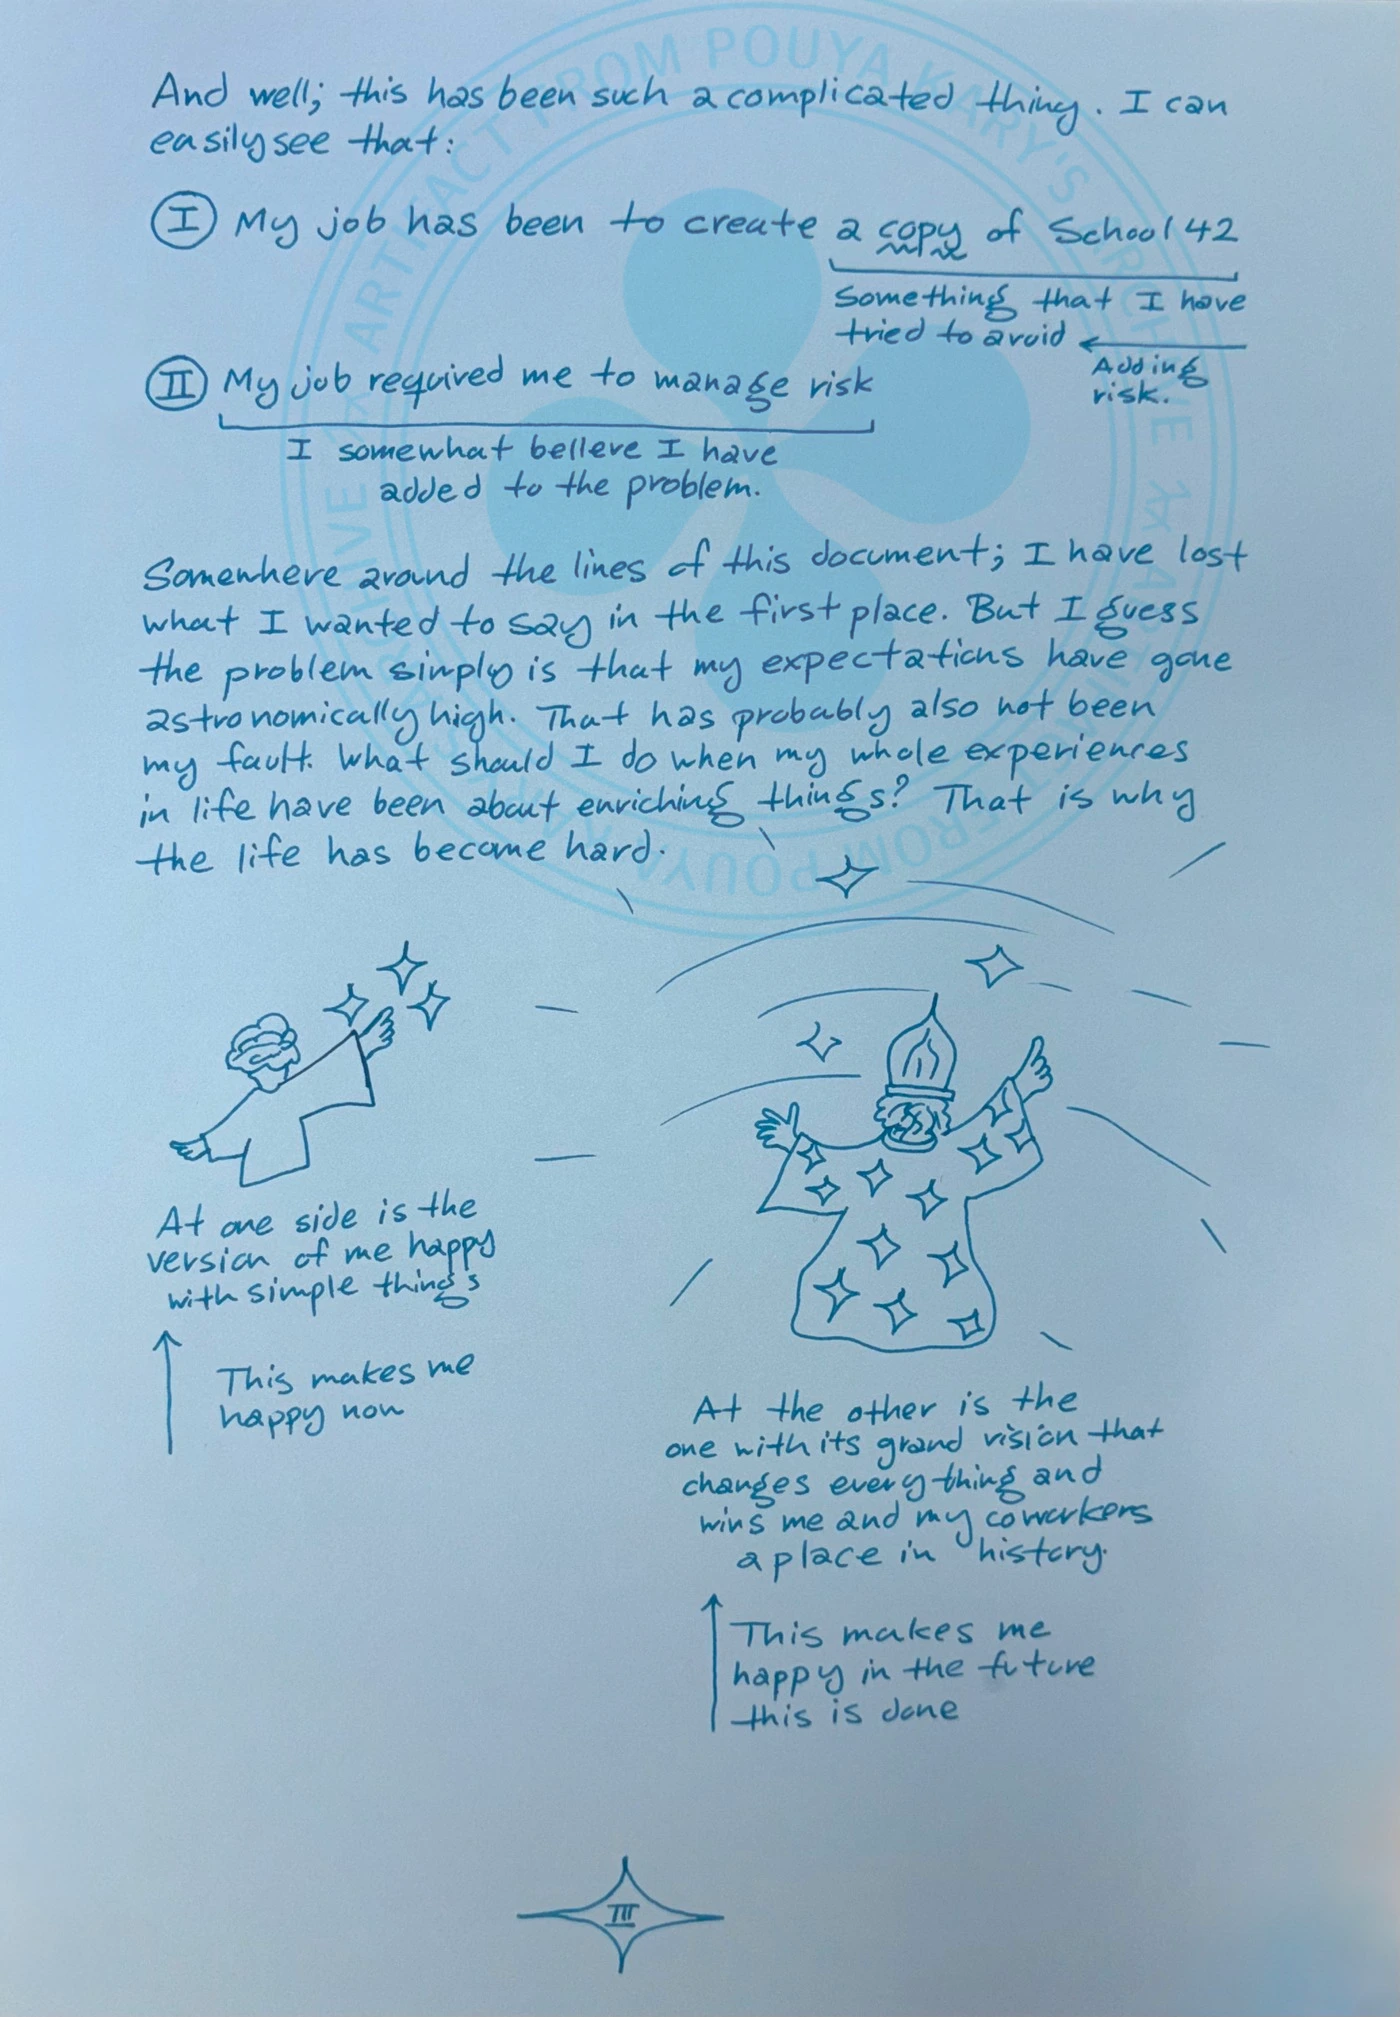 And well; this has been such a complicated thing. I can
easily see that:
I My job has been to create a copy of School 42
Something that I have
tried to avoid
Adding
risk.
II My job required me to manage risk
I somewhat believe I have
added to the problem.
Somewhere around the lines of this document; I have lost
what I wanted to say in the first place. But I guess
the problem simply is that my expectations have gone
astronomically high. That has probably also not been
my fault. What should I do when my whole experiences
in life have been about enriching things? That is why
the life has become hard.
At one side is the
version of me happy
with simple things
This makes me
happy now
At the other is the
one with its grand vision that
changes everything and
wins me and my coworkers
a place in history.
This makes me
happy in the future
this is done
III
ARTIFACT FROM POUYA KARY'S ARCHIVE
ARTIFACT FROM POUYA KARY'S ARCHIVE